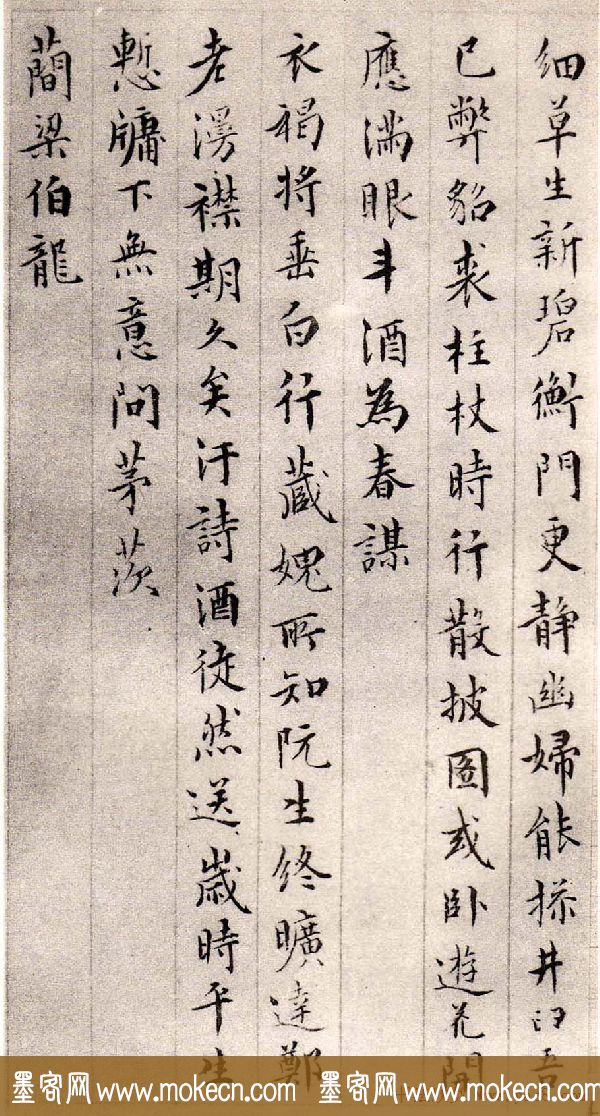 細草生新碧衡門更静幽婦能操井臼吾
已弊貂裘柱杖時行散披圖或卧遊花開
應滿眼斗酒為春謀
衣褐將垂白行藏媿所知阮生終曠達鄭
老漫襟期久矣汙詩酒徒然送歲時平生
慙牗下無意問茅茨
蕳梁伯龍
墨客网 www.mokecn.com 墨客网 www.mokecn.com